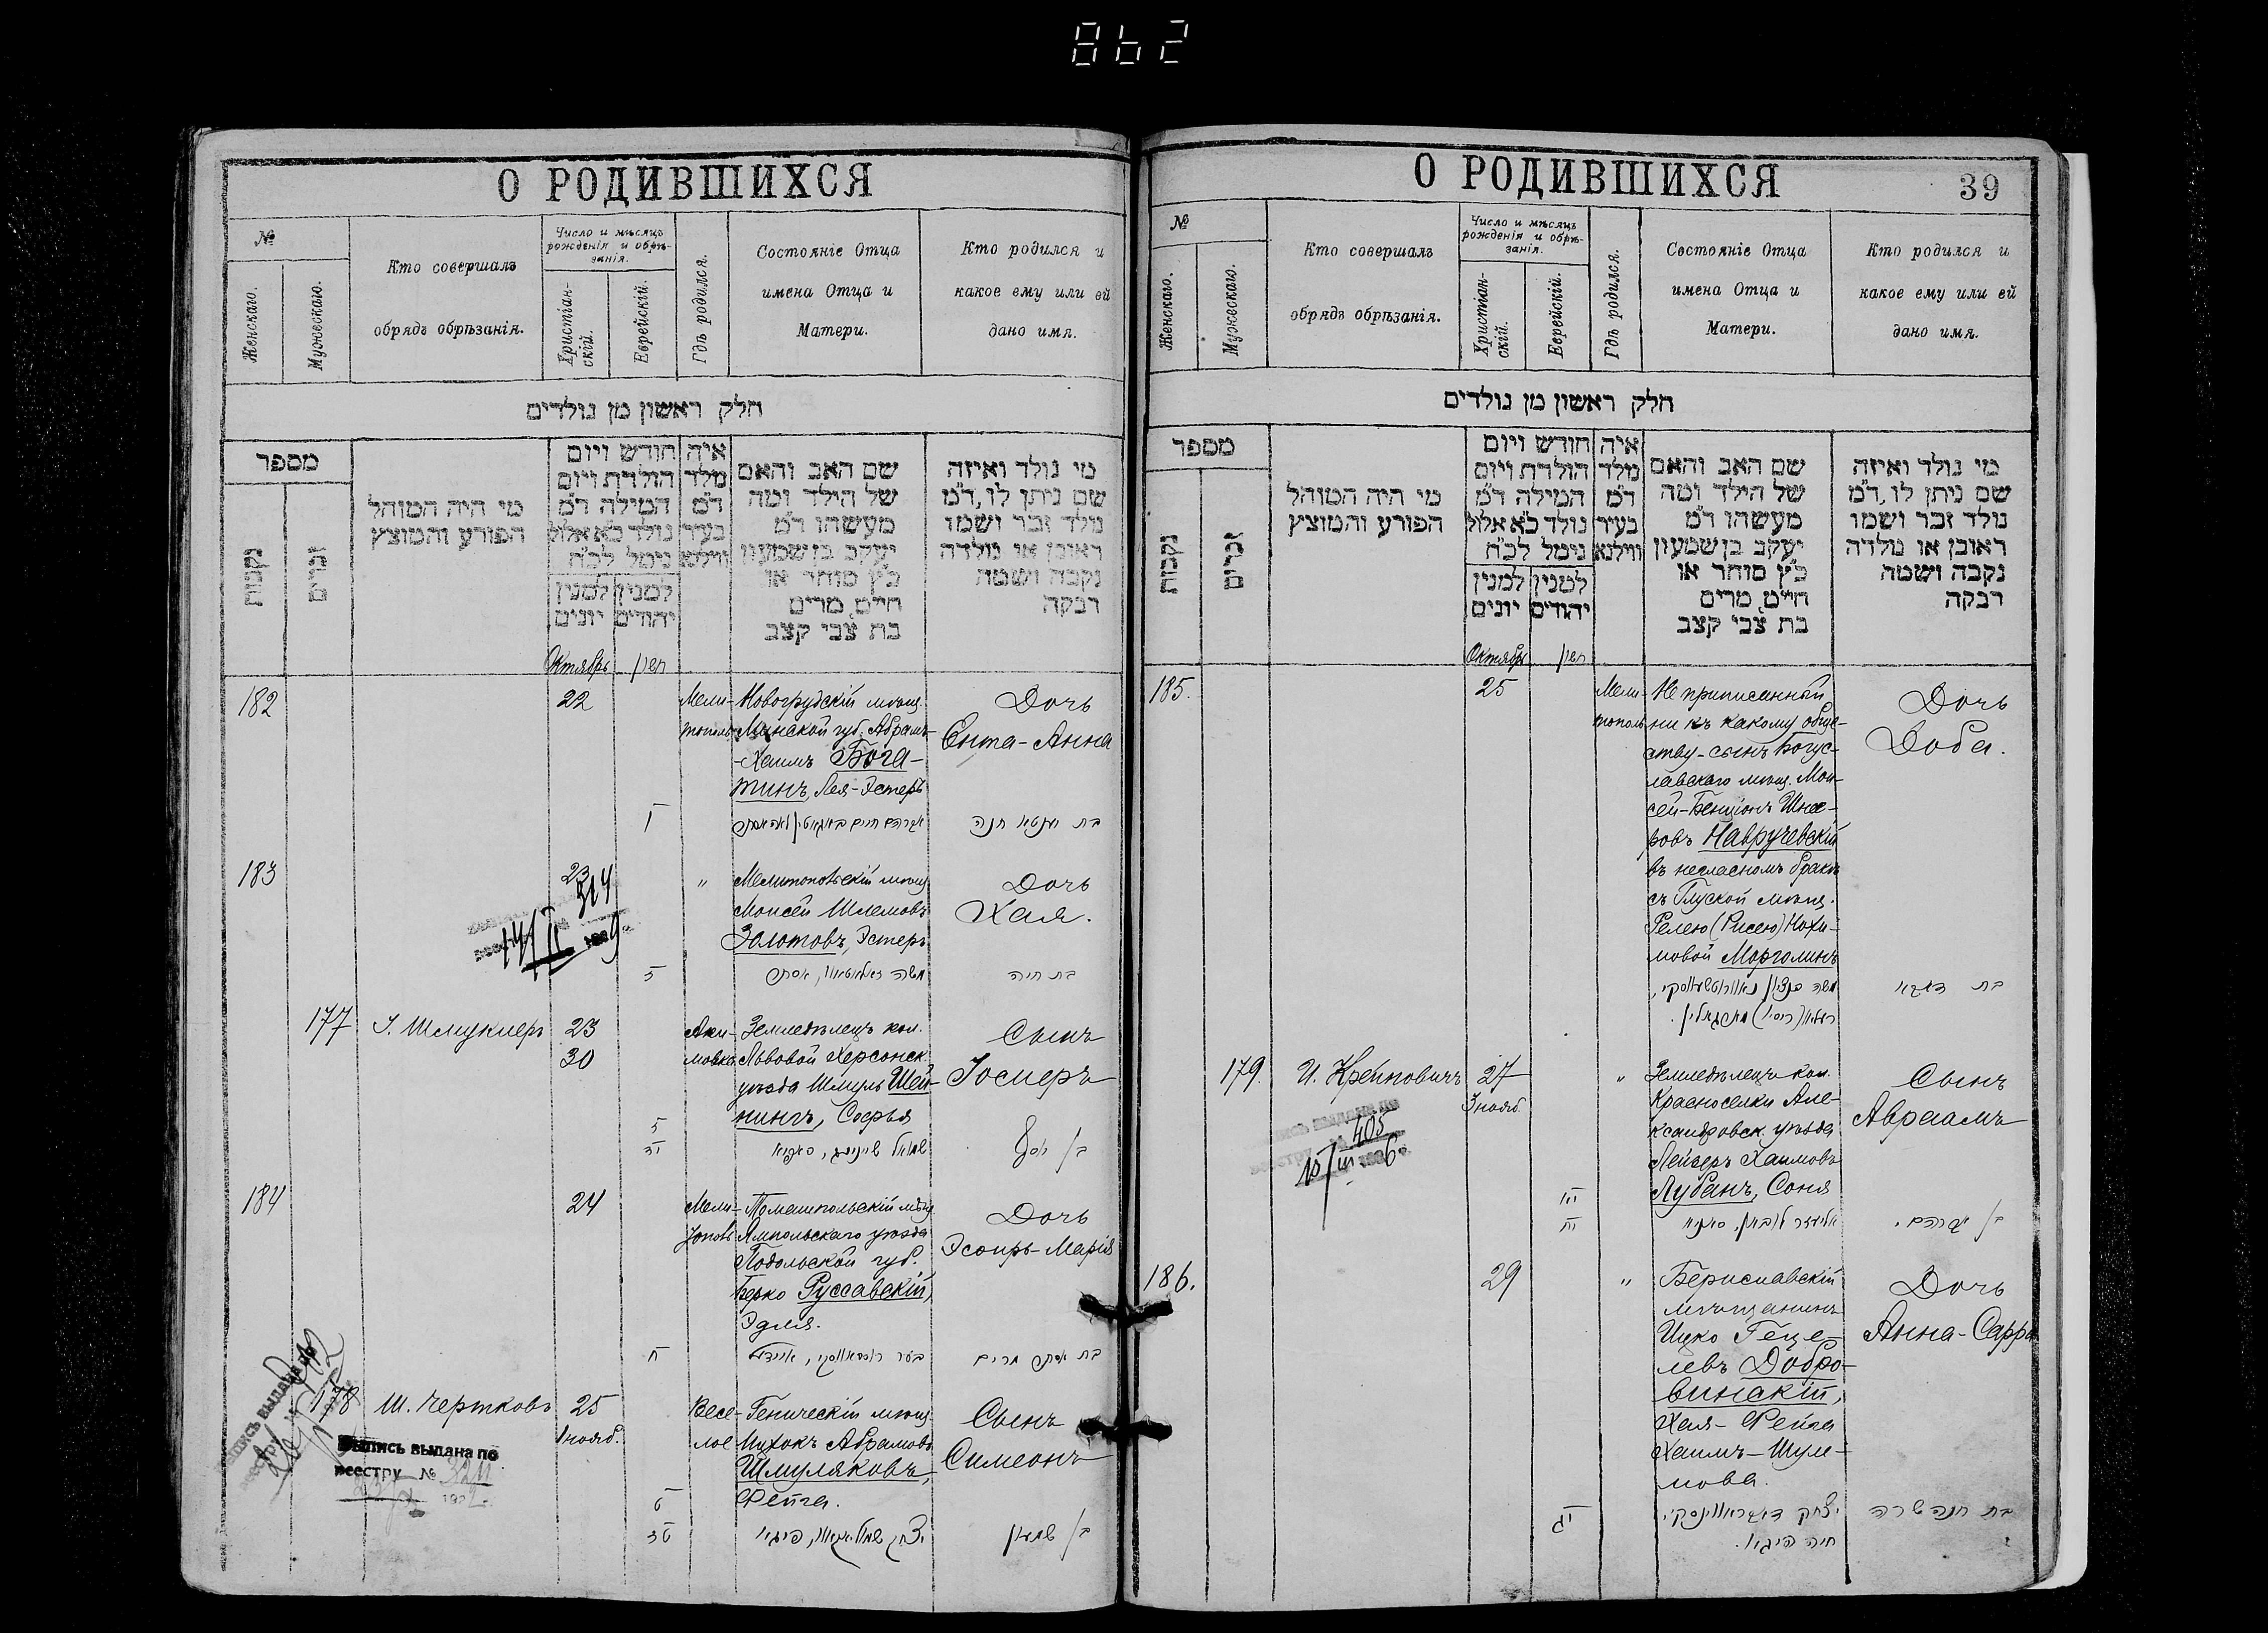 862
О РОДИВШИХСЯ
№
Женскаго.
Мужескаго.
Кто совершалъ
обрядъ обрѣзанія.
Число и мѣсяцъ
рожденія и обрѣ-
занія.
Христіан-
скій.
Еврейскій.
Гдѣ родился.
Состояніе Отца
имена Отца и
Матери.
Кто родился и
какое ему или ей
дано имя.
חלק ראשון מן נולדים
מספר
נקבות
זכרים
מי היה המוהל
הפורע והמוצץ
חודש ויום
הולדת ויום
המילה ד"מ
נולד כ"א אלול
נימל לכ"ח
למנין יונים
למנין יהודים
איה
מלד
ד"מ
בעיר
ווילנא
שם האב והאם
של הילד ומה
מעשהו ד"מ
יעקב בן שמעון
כ"ץ סוחר או
חיים, מרים
בת צבי קצב
מי נולד ואיזה
שם ניתן לו, ד"מ
נולד זכר ושמו
ראובן או נולדה
נקבה ושמה
רבקה
Октябрь
חשון
182
22
Мели-
тополь
Новогрудскій мѣщ.
Минской губ. Абрамъ-
-Хаимъ Бога-
тинъ, Лея-Эстеръ
Дочь
Ента-Анна
183
23
"
Мелитопольскій мѣщ.
Моисей Шлемовъ
Золотовъ, Эстеръ
Дочь
Хая.
314
בת חיה
177
І. Шмуклеръ
23
30
Аки-
мовка
Земледѣлецъ кол.
Львовой Херсонск.
уѣзда Шмуль Шей-
нингъ, Софья
Сынъ
Іосиеръ
בן יוסף
184
24
Мели-
тополь
Томашпольскій мѣщ.
Ямпольскаго уѣзда
Подольской губ.
Берко Руссавскій,
Эдля.
Дочь
Эсѳирь-Марія
בת אסתר מרים
178
Ш. Чертковъ
25
1 нояб.
Весе-
лое
Геническій мѣщ.
Ицхокъ Абрамовъ
Шмуляковъ,
Фейга.
Сынъ
Симеонъ
בן שמעון
Выпись выдана по
реестру №
О РОДИВШИХСЯ
39
№
Женскаго.
Мужескаго.
Кто совершалъ
обрядъ обрѣзанія.
Число и мѣсяцъ
рожденія и обрѣ-
занія.
Христіан-
скій.
Еврейскій.
Гдѣ родился.
Состояніе Отца
имена Отца и
Матери.
Кто родился и
какое ему или ей
дано имя.
חלק ראשון מן נולדים
מספר
נקבות
זכרים
מי היה המוהל
הפורע והמוצץ
חודש ויום
הולדת ויום
המילה ד"מ
נולד כ"א אלול
נימל לכ"ח
למנין יונים
למנין יהודים
איה
מלד
ד"מ
בעיר
ווילנא
שם האב והאם
של הילד ומה
מעשהו ד"מ
יעקב בן שמעון
כ"ץ סוחר או
חיים, מרים
בת צבי קצב
מי נולד ואיזה
שם ניתן לו, ד"מ
נולד זכר ושמו
ראובן או נולדה
נקבה ושמה
רבקה
Октябрь
חשון
185.
25
Мели-
тополь
Неприписанный
ни къ какому обще-
ству-сынъ Богус-
лавскаго мѣщ. Мои-
сей-Бенціонъ Шнее-
ровъ Навручевскій
въ негласномъ бракѣ
съ Глуской мѣщ.
Релею (Рисею) Нохи-
мовой Марголинъ
Дочь
Доба.
179.
И. Крейновичъ
27
3 нояб.
"
Земледѣлецъ кол.
Красноселки Але-
ксандровск. уѣзда
Лейзеръ Хаимовъ
Лубанъ, Соня
Сынъ
Авраамъ
405
בן אברהם.
186.
29
"
Бериславскій
мѣщанинъ
Ицко Геце-
левъ Добро-
винскій,
Хая-Фейга
Хаимъ-Шули-
мова.
Дочь
Анна-Сарра
יג
בת חנה שרה
חיה פייגא.